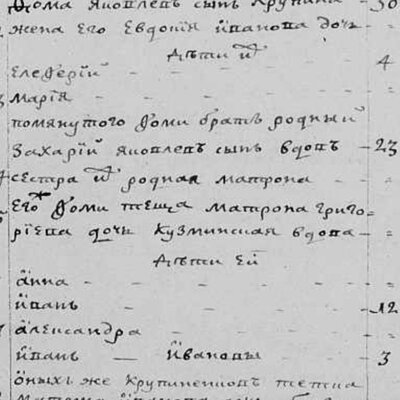 Ѳома Яковлевъ сынъ Крупина - 30
жена Его Евдокія Иванова дочь -
дѣти ихъ
Елеѳерій - - - - - 4
Марія - - - - -
помянутого Ѳоми братъ родный
Захарій Яковлевъ сынъ вдовъ - 23
сестра их родная Матрона - -
Его Ѳоми теща Матрона Григо=
ріева дочь Кузминская вдова -
дѣти Ей
Анна - - - - -
Иванъ - - - - - 12
Александра - - - -
Иванъ — Ивановы - - 3
Оныхъ же Крупиненковъ тетка